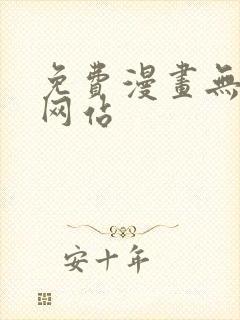 免費漫畫無
网占
安十年